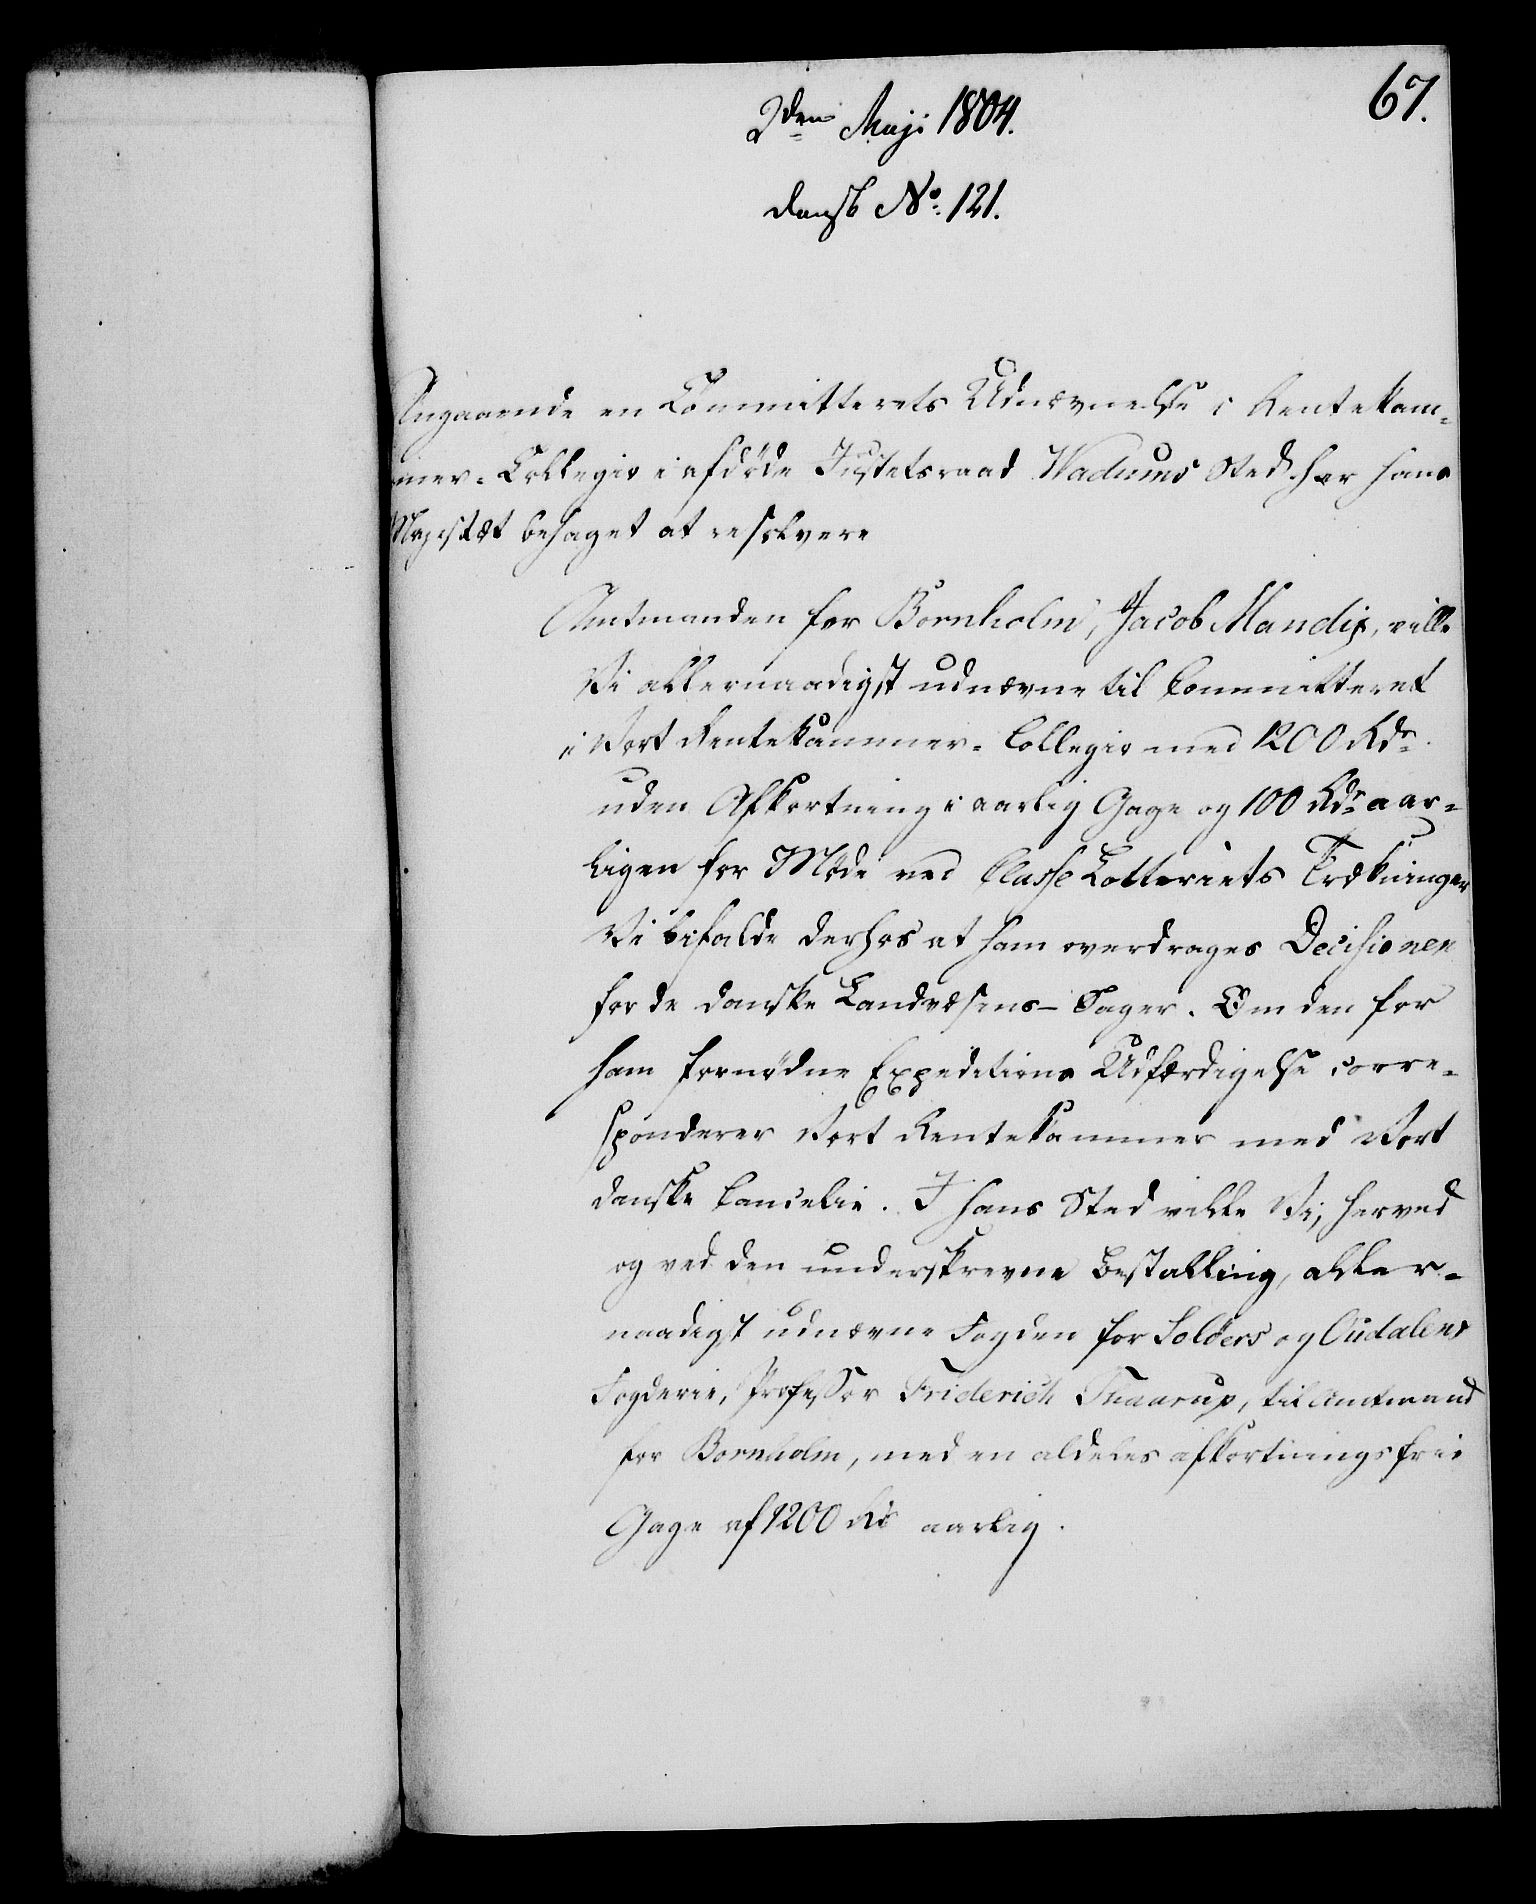 67.
2den Maji 1804.
Dansk No. 121.
Angaaende en Committerets Udnævnelse i Rentekam-
mer-Collegio i afdöde Justitsraad Wadums Sted har Hans
Majestæt behaget at resolvere
Amtmanden for Bornholm, Jacob Mandix, ville
Vi allernaadigst udnævne til Committeret
i Vort Rentekammer-Collegio med 1200 Rdr.
uden Afkortning i aarlig Gage og 100 Rdr. aar-
ligen for Möde ved Classe Lotteriets Trækninger
Vi bifalde derhos at ham overdrages Decisionen
for de danske Landvæsens-Sager. Om den for
ham fornödne Expeditions Udfærdigelse corre-
sponderer Vort Rentekammer med Vort
danske Cancelie. I hans Sted ville Vi, herved
og ved den underskrevne Bestalling, aller-
naadigst udnævne Fogden for Solöers og Oudalens
Fogderie, Professor Friderich Thaarup, til Amtmand
for Bornholm, med en aldeles afkortningsfrie
Gage af 1200 Rd aarlig.